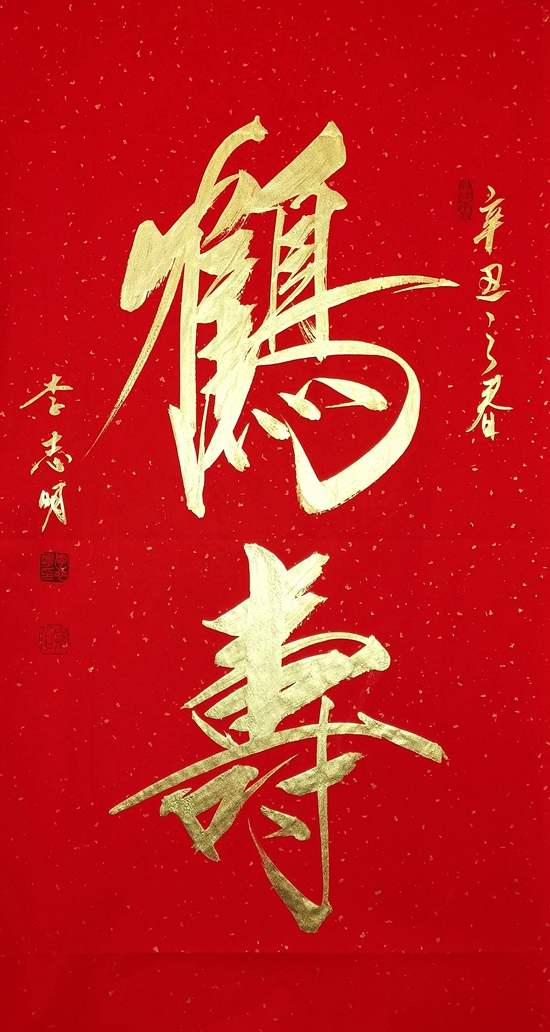 辛丑之春
鶴壽
李志明